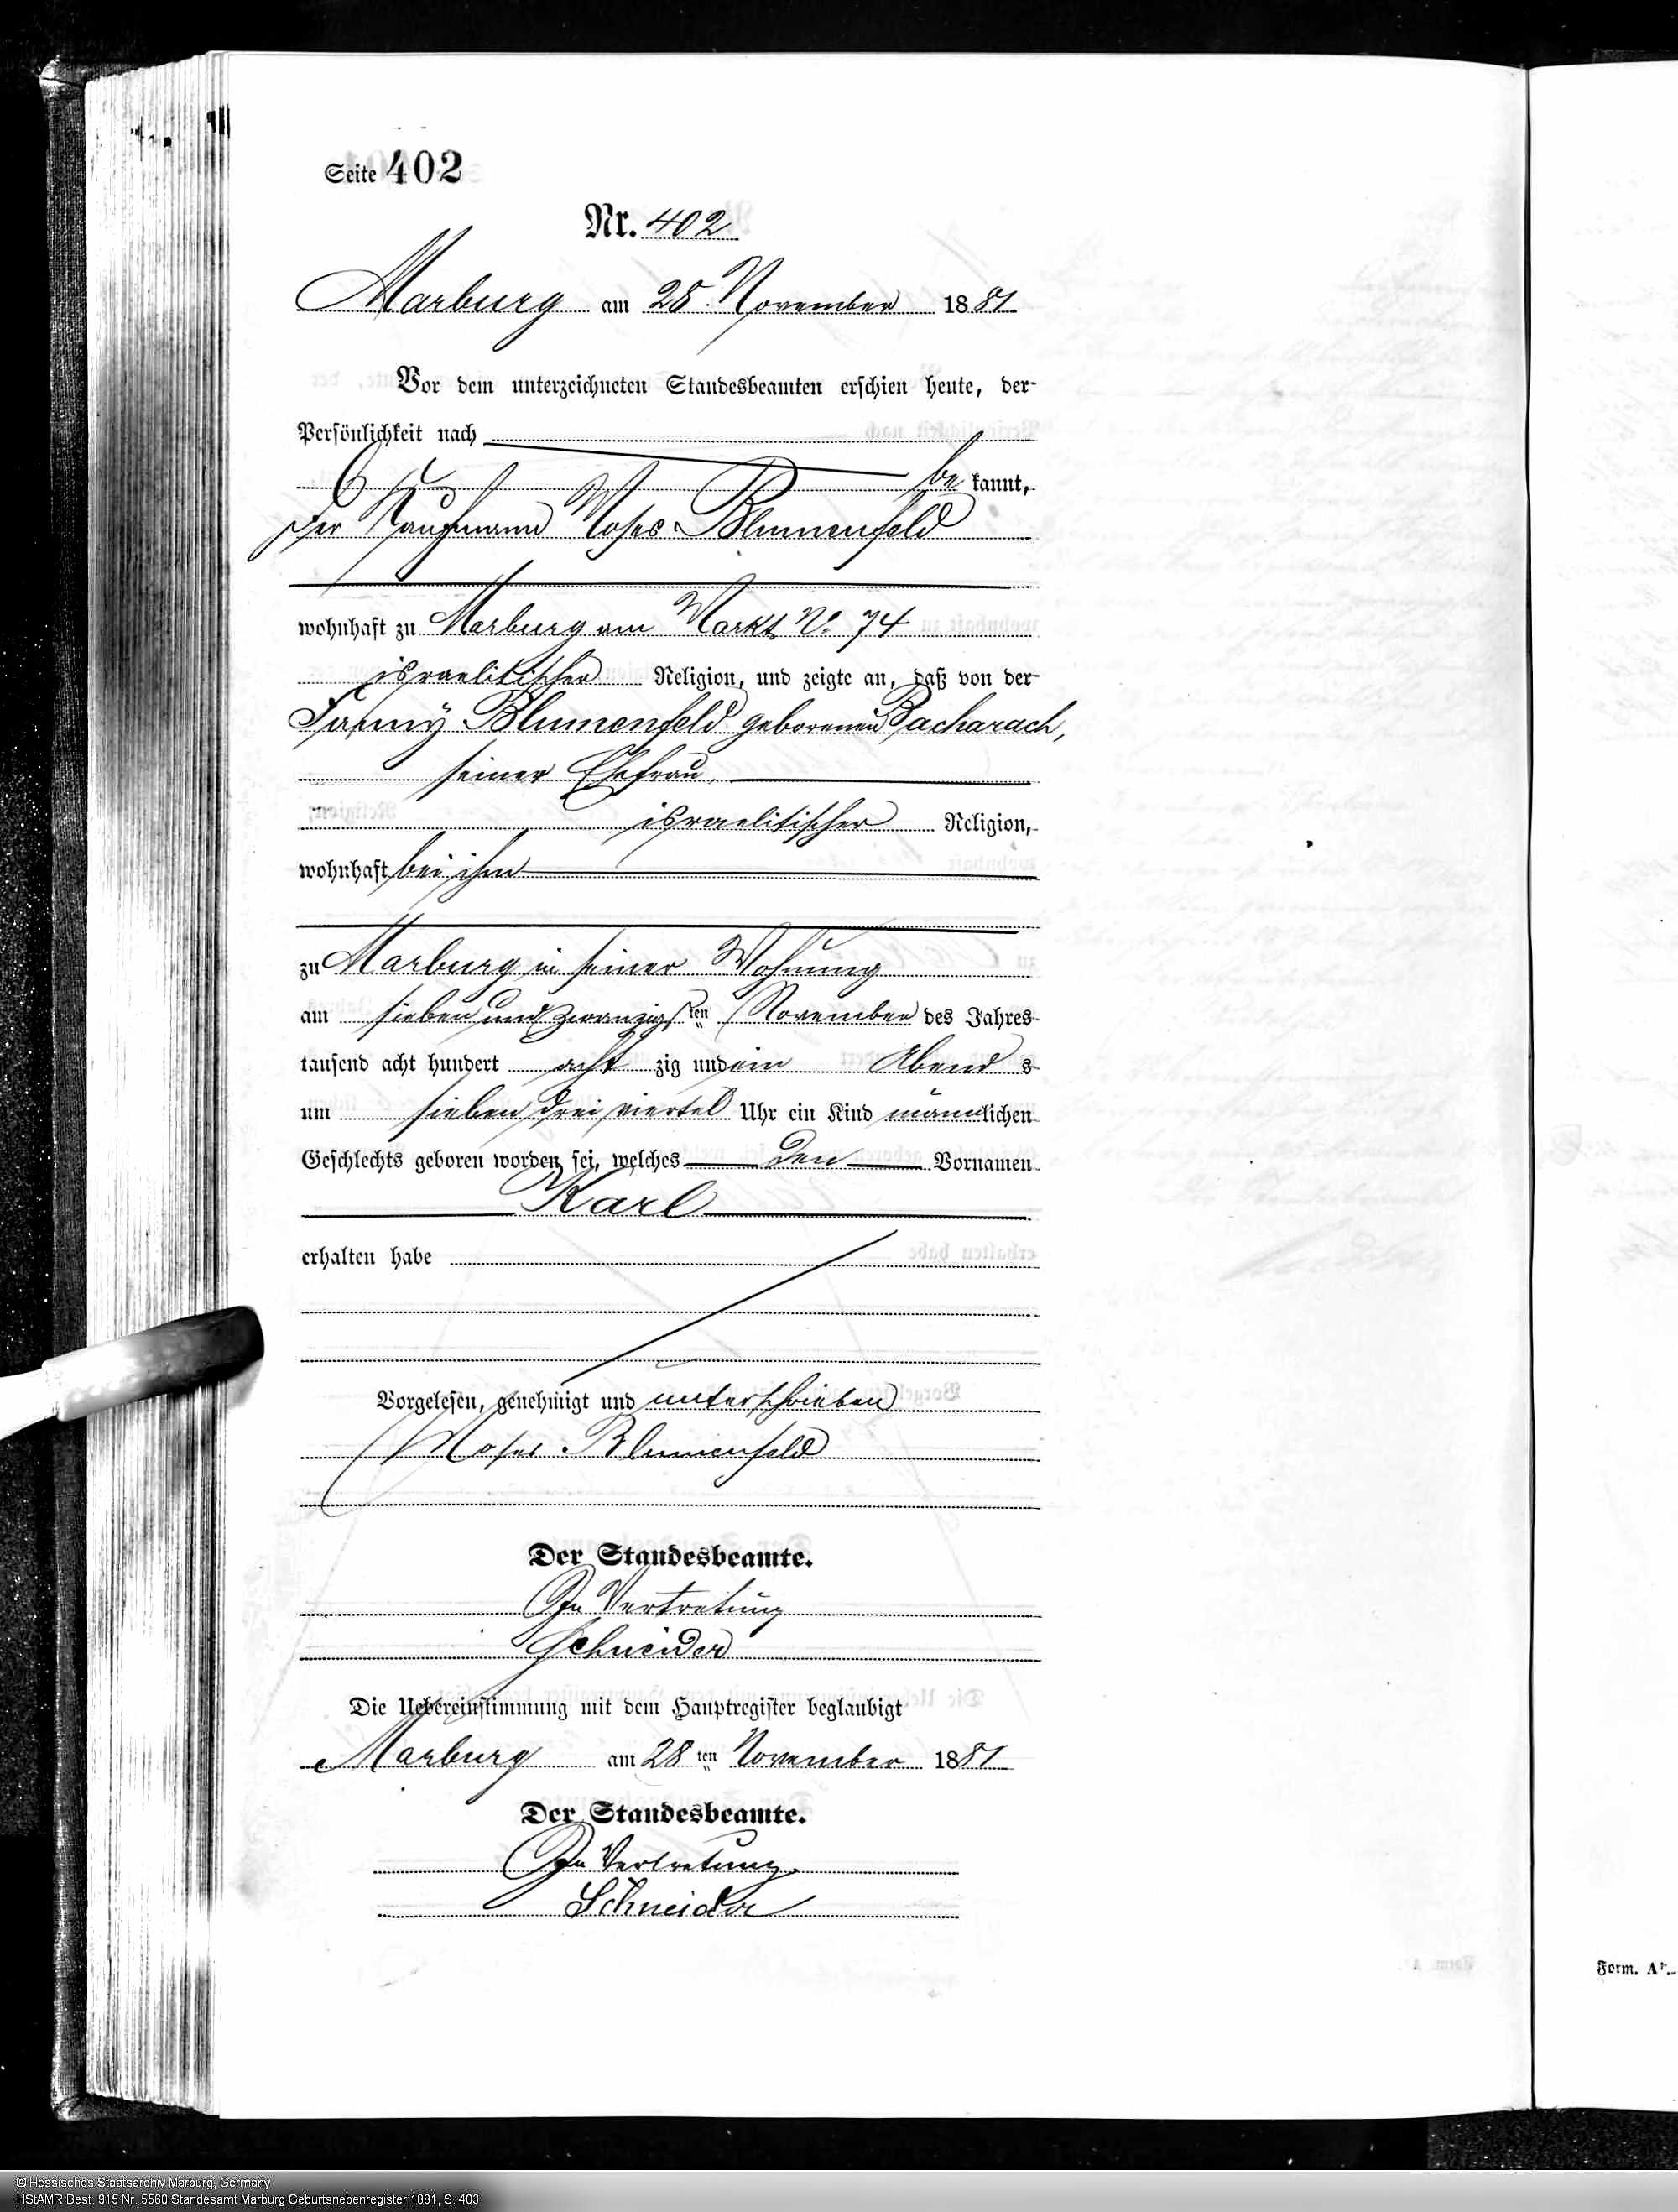 Seite 402
Nr. 402
Marburg am 28. November 1881
Vor dem unterzeichneten Standesbeamten erschien heute, der
Persönlichkeit nach
be kannt,
der Kaufmann Moses Blumenfeld
wohnhaft zu Marburg am Markt No. 74
israelitischer Religion, und zeigte an, daß von der
Fanny Blumenfeld geborenen Bacharach,
seiner Ehefrau,
israelitischer Religion,
wohnhaft bei ihm
zu Marburg in seiner Wohnung
am sieben und zwanzigsten November des Jahres
tausend acht hundert acht zig und ein Abend s
um sieben drei viertel Uhr ein Kind männlichen
Geschlechts geboren worden sei, welches den Vornamen
Karl
erhalten habe
Vorgelesen, genehmigt und unterschrieben
Moses Blumenfeld
Der Standesbeamte.
In Vertretung
Schneider
Die Uebereinstimmung mit dem Hauptregister beglaubigt
Marburg am 28ten November 1881
Der Standesbeamte.
In Vertretung.
Schneider
Form. A
© Hessisches Staatsarchiv Marburg, Germany
HStAMR Best. 915 Nr. 5560 Standesamt Marburg Geburtsnebenregister 1881, S. 403